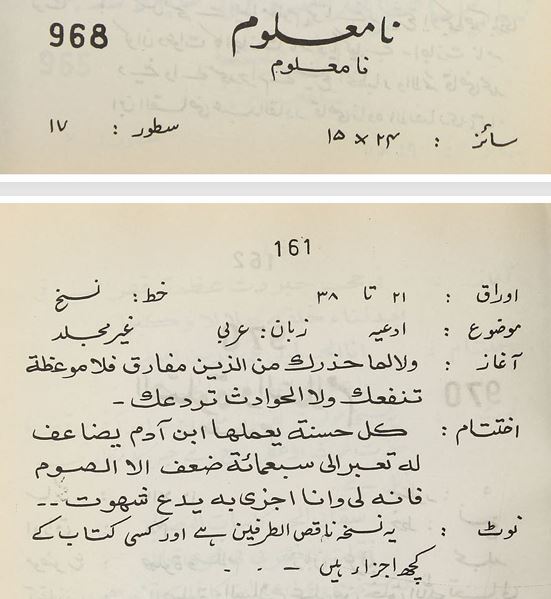 968
نامعلوم
نامعلوم
سائز : ۲۴ × ۱۵ سطور : ۱۷
161
اوراق : ۲۱ تا ۳۸ خط : نسخ
موضوع : ادعیہ زبان : عربی غیرمجلد
آغاز : ولالما حذرك من الذین مفارق فلا موعظة
تنفعك ولا الحوادث تردعك -
اختتام : كل حسنة یعملها ابن آدم یضاعف
له تعبر الى سبعمائة ضعف الا الصوم
فانه لی وانا اجزی به یدع شهوت --
نوٹ : یہ نسخہ ناقص الطرفین ہے اور کسی کتاب کے
کچھ اجزاء ہیں - - -